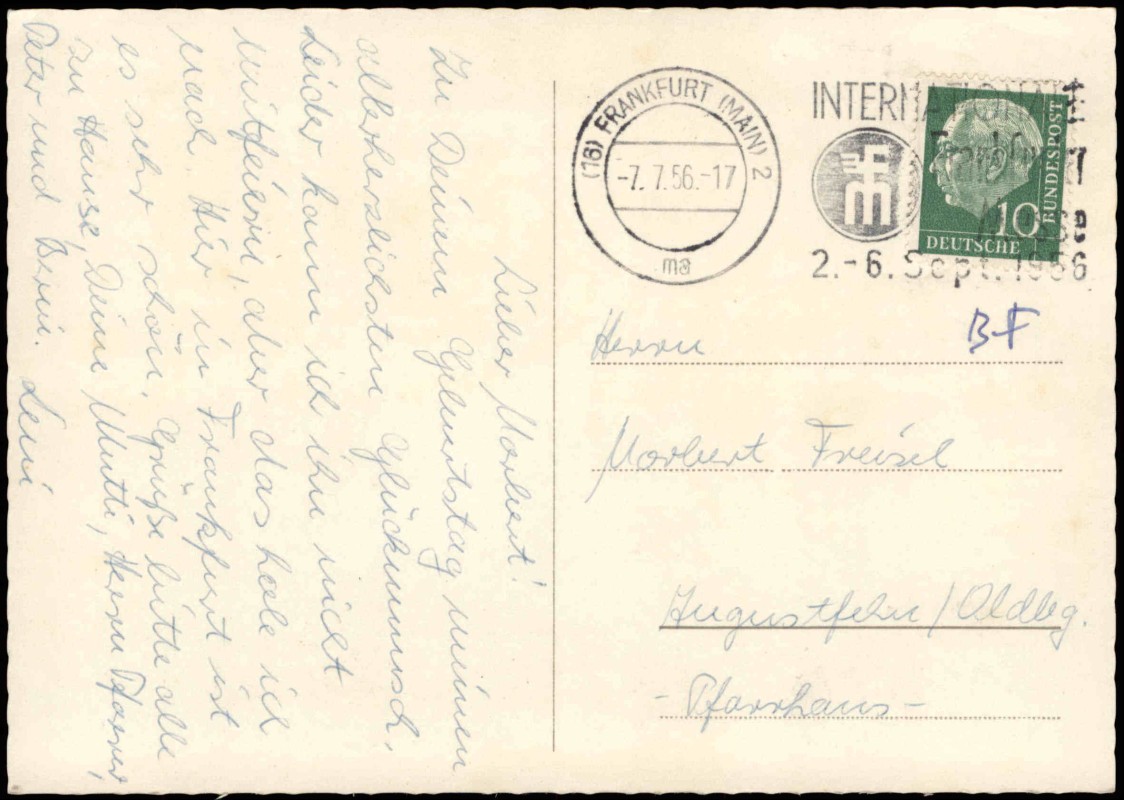 Lieber Norbert!
Zu Deinem Geburtstag meinen
allerherzlichsten Glückwunsch.
Leider kann ich ihn nicht
mitfeiern, aber das hole ich
nach. Hier in Frankfurt ist
es sehr schön. Grüße bitte alle
zu Hause, Deine Mutti, Herrn Pfarrer,
Peter und Berni. Leni
(16) FRANKFURT (MAIN) 2
-7. 7. 56.-17
ma
INTERNATIONALE
Frankfurter
Messe
2.-6. Sept. 1956
BUNDESPOST
10
DEUTSCHE
B-F
Herrn
Norbert Freisel
Augustfehn/Oldbg.
- Pfarrhaus -